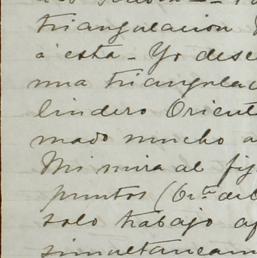 triangulacion
á esta - Yo dese
una triangulac
lindero Orient
mado mucho a
Mi mira al fij
puntos (
solo trabajo ap
simultaneam